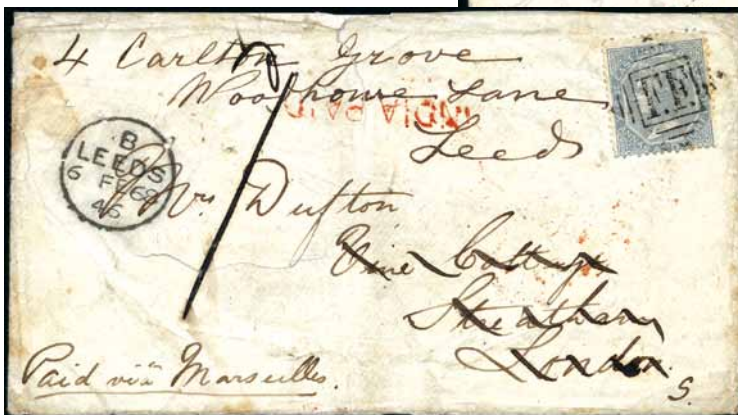 4 Carlton Grove
Woodhouse Lane
Leeds
INDIA PAID
B
LEEDS
6 FE 68
46
Mrs Dufton
Vine Cottage
Streatham
London
S.
Paid viâ Marseilles.